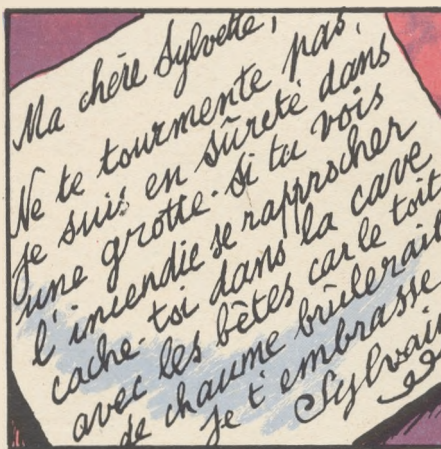 Ma chère Sylvette,
Ne te tourmente pas,
je suis en sûreté dans
une grotte. Si tu vois
l'incendie se rapprocher
cache-toi dans la cave
avec les bêtes car le toit
de chaume brûlerait
Je t'embrasse
Sylvain